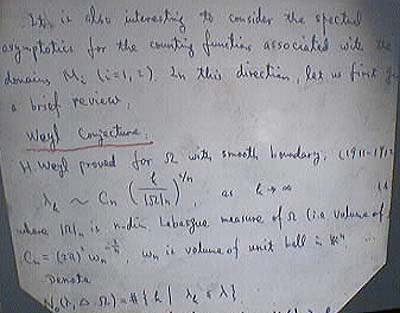 It is also interesting to consider the spectral
asymptotics for the counting functions associated with the
domains M_i (i=1,2). In this direction, let us first
a brief review.
Weyl Conjecture:
H. Weyl proved for Ω with smooth boundary, (1911-191
λ_k ~ C_n (k/|Ω|_n)^{2/n}, as k→∞
where |Ω|_n is n-dim. Lebesgue measure of Ω (i.e. volume of
C_n = (2π)² w_n^{-2/n}, w_n is volume of unit ball in ℝⁿ. ...
Denote
N_0(λ, Δ, Ω) = #{k | λ_k ≤ λ}.